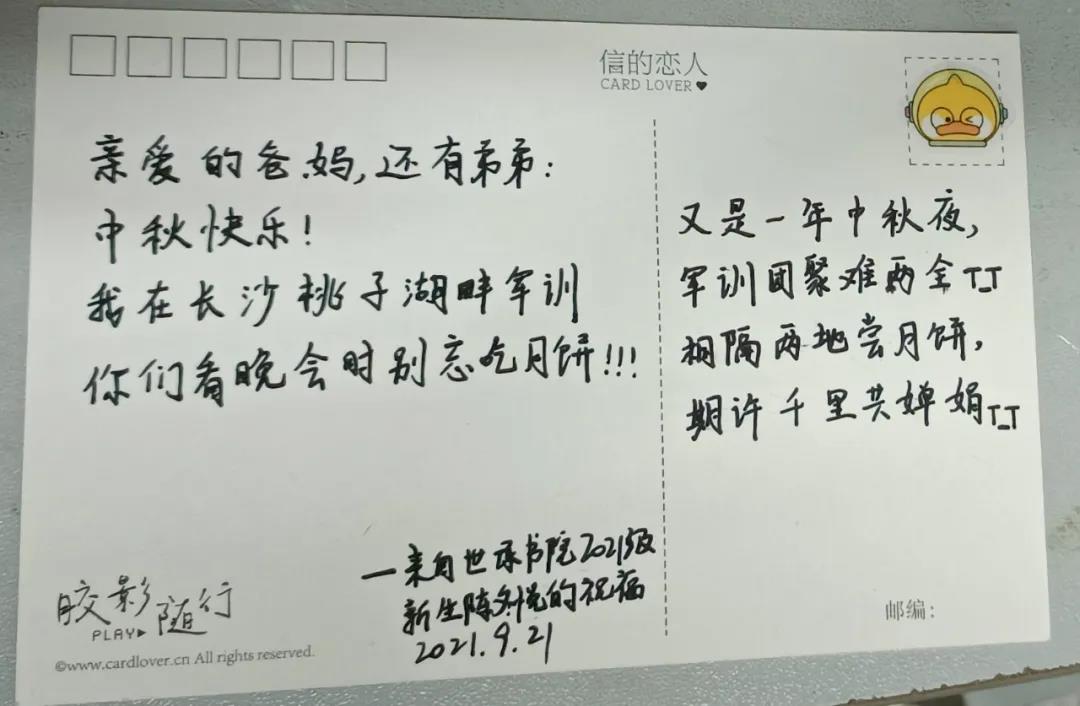 信的恋人
CARD LOVER
亲爱的爸妈,还有弟弟:
中秋快乐!
我在长沙桃子湖畔军训
你们看晚会时别忘吃月饼!!!
又是一年中秋夜,
军训团聚难两全T_T
相隔两地尝月饼,
期许千里共婵娟T_T
—来自世承书院2021级
新生陈的祝福
2021.9.21
胶影随行
PLAY
©www.cardlover.cn All rights reserved.
邮编: